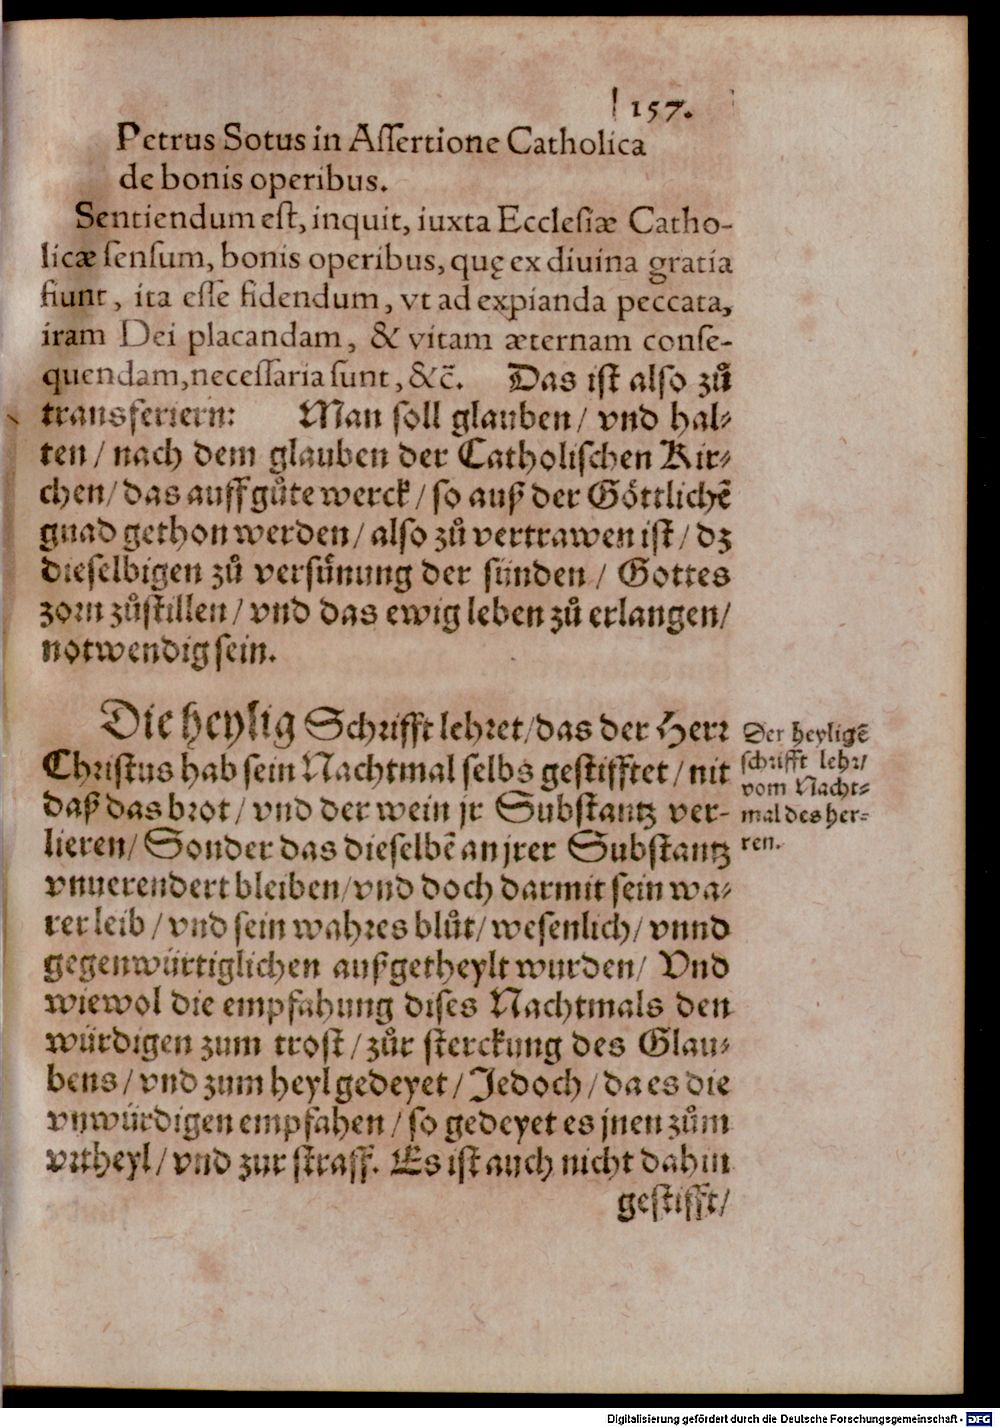 157.
Petrus Sotus in Aſſertione Catholica
de bonis operibus.
Sentiendum eſt, inquit, iuxta Eccleſiæ Catho-
licæ ſenſum, bonis operibus, quę ex diuina gratia
fiunt, ita eſſe fidendum, vt ad expianda peccata,
iram Dei placandam, & vitam æternam conſe-
quendam, neceſſaria ſunt, &c̃. Das iſt alſo zů
transferiern: Man ſoll glauben / vnd hal⸗
ten / nach dem glauben der Catholiſchen Kir⸗
chen / das auff gůte werck / ſo auß der Göttlichẽ
gnad gethon werden / alſo zů vertrawen iſt / dz
dieſelbigen zů verſünung der ſünden / Gottes
zorn zůſtillen / vnd das ewig leben zů erlangen /
notwendig ſein.
Die heylig Schrifft lehret / das der Herr
Chriſtus hab ſein Nachtmal ſelbs geſtifftet / nit
daß das brot / vnd der wein jr Subſtantz ver-
lieren / Sonder das dieſelbẽ an jrer Subſtantz
vnuerendert bleiben / vnd doch darmit ſein wa⸗
rer leib / vnd ſein wahres blůt / weſenlich / vnnd
gegenwürtiglichen außgetheylt wurden / Vnd
wiewol die empfahung diſes Nachtmals den
würdigen zum troſt / zůr ſterckung des Glau⸗
bens / vnd zum heyl gedeyet / Jedoch / da es die
vnwürdigen empfahen / ſo gedeyet es jnen zům
vrtheyl / vnd zur ſtraff. Es iſt auch nicht dahin
geſtifft /
Der heyligẽ
ſchrifft lehr /
vom Nacht⸗
mal des her⸗
ren.
Digitalisierung gefördert durch die Deutsche Forschungsgemeinschaft - DFG